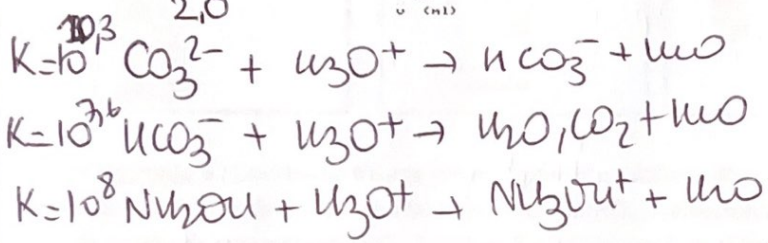 2,0
K=10^10,3 CO₃²⁻ + H₃O⁺ → HCO₃⁻ + H₂O
K=10^7,6 HCO₃⁻ + H₃O⁺ → H₂O,CO₂ + H₂O
K=10⁸ NH₂OH + H₃O⁺ → NH₃OH⁺ + H₂O